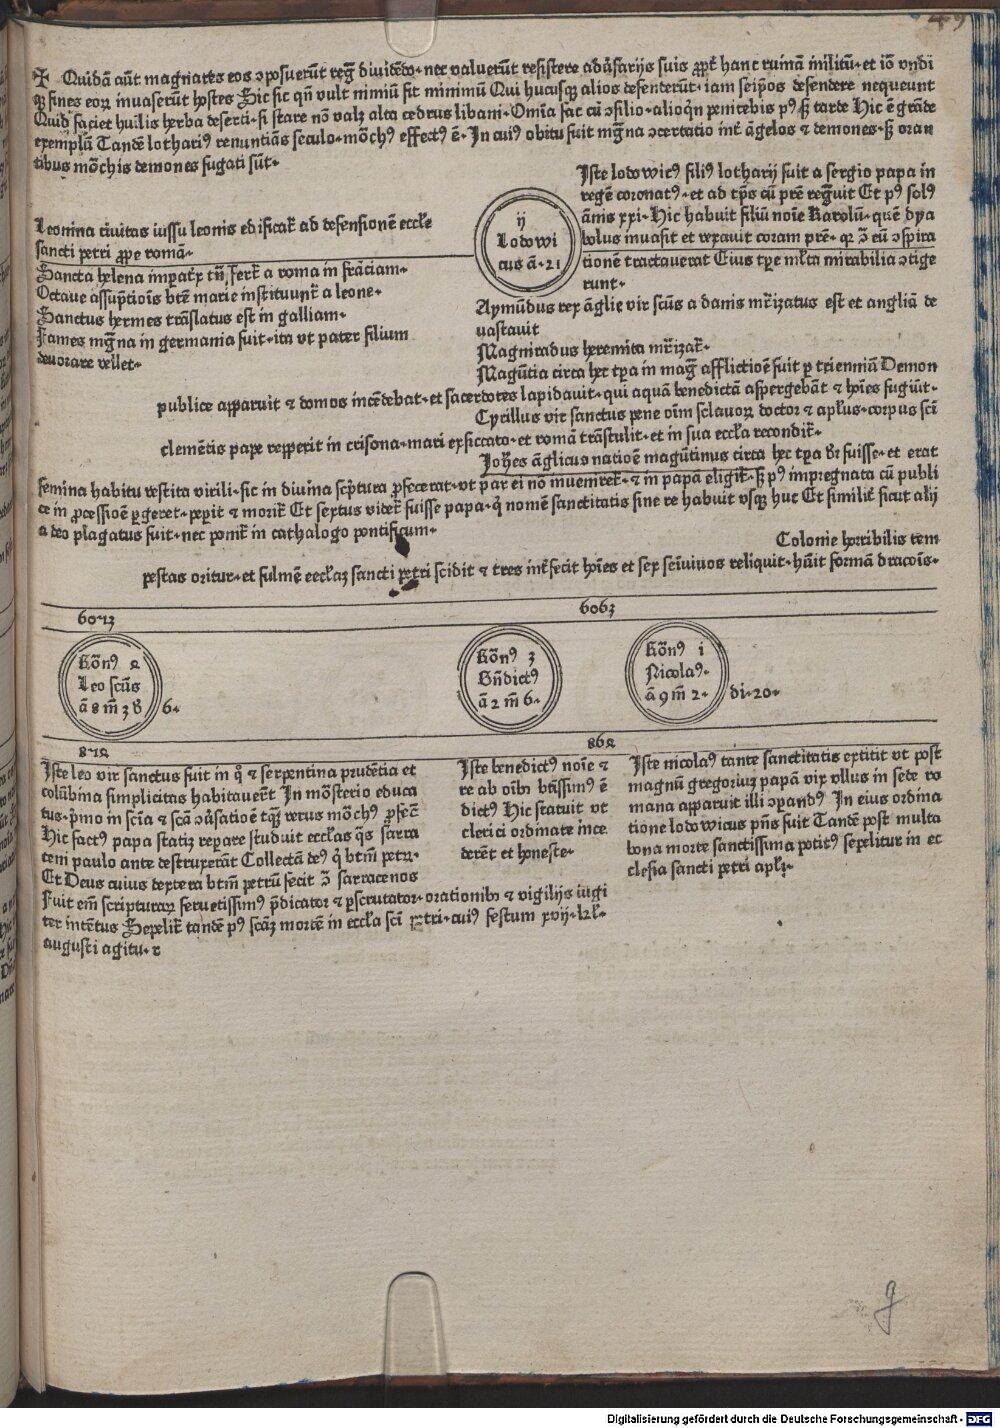 49
✠ Quidā aūt magnates eos ↄposuerūt regē diuidēdo · nec valuerūt resistere aduersarijs suis ꝓpt hanc ruinā militū · et iō vndi
qꝫ fines eoꝝ inuaserūt hostes Sic fit qn̄ vult nimiū fit minimū Qui hucusqꝫ alios defenderūt · iam seip̄os defendere nequeunt
Quid faciet huīlis herba deserti · si stare nō valꝫ alta cedrus libani · Omīa fac cū ↄsilio · alioqn penitebis pꝰ sꝫ tarde Hic ē grāde
exemplū Tandē lothariꝰ renuntiās seculo · mōchꝰ effectꝰ ē · In cuiꝰ obitu fuit mḡna ↄcertatio int āgelos ⁊ demones · sꝫ oran
tibus mōchis demones fugati sūt ·
Iste lodowicꝰ filiꝰ lotharij fuit a sergio papa in
regē coronatꝰ · et ad tp̄s cū pre regnuit Et pꝰ solꝰ
ānis xxi · Hic habuit filiū noīe Karolū · quē dya
bolus inuasit et vexauit coram prē · qꝛ ꝯ eū ↄspira
tionē tractauerat Eius tp̄e mlta mirabilia ↄtige
runt ·
ij
Lodowi
cus ā · 21
Leonina ciuitas iussu leonis edificat ad defensionē eccle
sancti petri ꝓpe romā ·
Sancta helena impatx tn̄ fert a roma in frāciam ·
Octaue assūptiōis bte marie instituunt a leone ·
Sanctus hermes trāslatus est in galliam ·
Fames mgna in germania fuit · ita vt pater filium
deuorare vellet ·
Aymūdus rex āglie vir scūs a danis mrizatus est et angliā de
uastauit
Magnradus heremita mrizat ·
Magūtia circa hec tpa in mag afflictioē fuit p trienniū Demon
publice apparuit ⁊ domos incēdebat · et sacerdotes lapidauit · qui aquā benedictā aspergebāt ⁊ hoīes fugiūt ·
Cyrillus vir sanctus pene oīm sclauoꝝ doctor ⁊ aplus · corpus scī
clemētis pape repperit in crisona · mari exsiccato · et romā trāstulit · et in sua eccla recondit ·
Johes āglicus natioē magūtinus circa hec tpa dr fuisse · et erat
femina habitu vestita virili · sic in diuina scptura ꝓfecerat · vt par ei nō inueniret · ⁊ in papā eligit · sꝫ pꝰ impregnata cū publi
ce in ꝓcessioē pgeret · peꝑit ⁊ morit Et sextus videt fuisse papa · q̇ nomē sanctitatis sine re habuit vsqꝫ huc Et similit sicut alij
a deo plagatus fuit · nec ponit in cathalogo pontificum ·
Colonie horribilis tem
pestas oritur · et fulmē ecclaꝫ sancti petri scidit ⁊ tres intfecit hoīes et sex semiuiuos reliquit · hūit formā dracoīs ·
6073 6063
Rōnꝰ 2
Leo scūs
ā 8 m̄ 3 d
6 ·
Rōnꝰ 3
Bn̄dictꝰ
ā 2 m̄ 6 ·
Rōnꝰ i
Nicolaꝰ ·
ā 9 m̄ 2 ·
di · 20 ·
872 862
Iste leo vir sanctus fuit in q̊ ⁊ serpentina prudētia et
colūbina simplicitas habitauert In mōsterio educa
tus · pmo in scīa ⁊ scā ↄuersatioē tqꝫ verus mōchꝰ ꝓfect
Hic factꝰ papa statiꝫ reparare studuit ecclas q̄s sarra
ceni paulo ante destruxerāt Collectā deꝰ q̇ btm̄ petꝝ ·
Et Deus cuius dextera btm̄ petrū fecit ꝯ sarracenos
Fuit em̄ scripturaꝝ feruētissimꝰ p̄dicator ⁊ pscrutator · orationibꝫ ⁊ vigilijs iugi
ter intētus Sepelit tandē pꝰ scāꝫ mortē in eccla scī petri · cuiꝰ festum xvij · kl ·
augusti agitu · r
Iste benedictꝰ noīe ⁊
re ab oībꝫ btissimꝰ ē
dictꝰ Hic statuit vt
clerici ordinate ince
derēt et honeste ·
Iste nicolaꝰ tante sanctitatis extitit vt post
magnū gregoriuꝫ papā vix vllus in sede ro
mana apparuit illi ↄpandꝰ In eius ordina
tione lodowicus pn̄s fuit Tandē post multa
bona morte sanctissima potitꝰ sepelitur in ec
clesia sancti petri aplꝫ ·
g
Digitalisierung gefördert durch die Deutsche Forschungsgemeinschaft - DFG